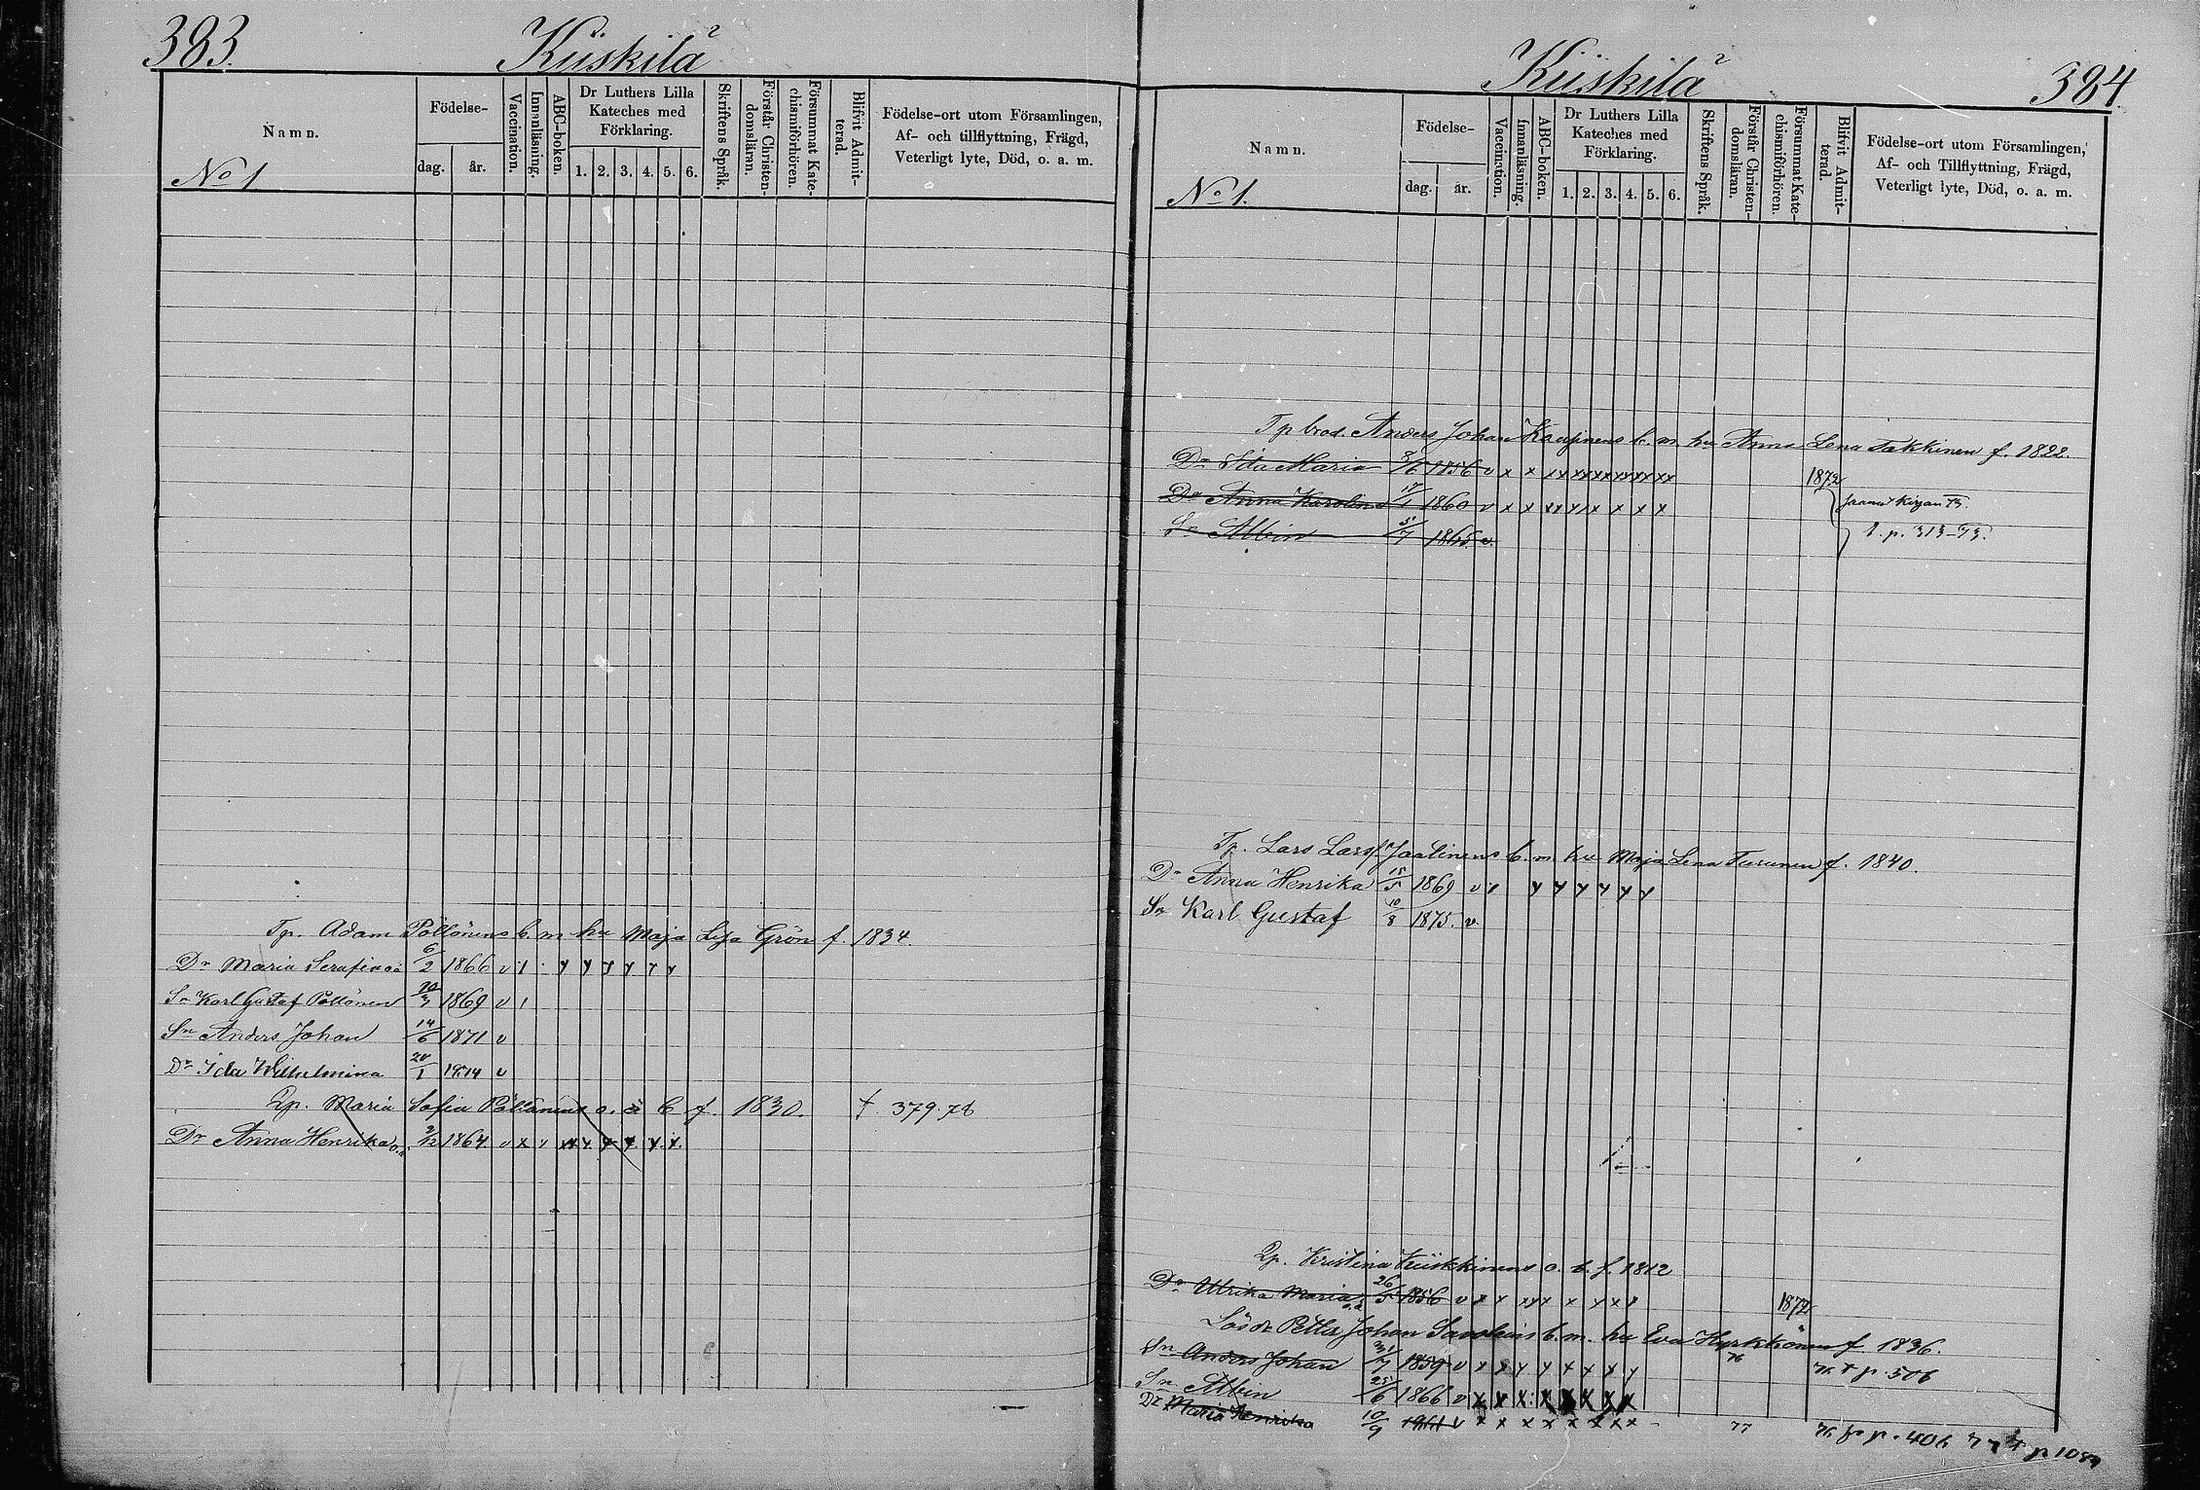 383.
Kiiskilä
Namn.
No 1
Födelse-
dag.
år.
Vaccination.
Innanläsning.
ABC-boken.
Dr Luthers Lilla
Kateches med
Förklaring.
1. 2. 3. 4. 5. 6.
Skriftens Språk.
Förstår Christen-
domsläran.
Försummat Kate-
chismiförhören.
Blifvit Admit-
terad.
Födelse-ort utom Församlingen,
Af- och tillflyttning, Frägd,
Veterligt lyte, Död, o. a. m.
Tp. Adam Pöllönens b. m. hu Maja Lisa Grön f. 1834.
Dr Maria Serafina 6/2 1866 v
Sn Karl Gustaf Pöllönen 1869 v
Sn Anders Johan 14/6 1871 v
Dr Ida Wilhelmina 1874 v
Maria Sofia Pöllönens o. ä b f. 1830. 379.78
Dr Anna Henrika 2/12 1864 v
Kiiskilä
384.
Namn.
No 1.
Födelse-
dag.
år.
Vaccination.
Innanläsning.
ABC-boken.
Dr Luthers Lilla
Kateches med
Förklaring.
1. 2. 3. 4. 5. 6.
Skriftens Språk.
Förstår Christen-
domsläran.
Försummat Kate-
chismiförhören.
Blifvit Admit-
terad.
Födelse-ort utom Församlingen,
Af- och Tillflyttning, Frägd,
Veterligt lyte, Död, o. a. m.
Tp brod. Anders Johan b. m. hu Anna Lena Takkinen f. 1822.
Dr Ida Maria 1856 v x x x x x x x x x x 1872
Dr Anna Karolina 17/1 1860 v x x x x x x x x
Sn Albin 1865 v. p. 313-73.
Tp. Lars Larsf. Jaatinens b. m. hu Maja Lena Turunen f. 1840.
Dr Anna Henrika 15/5 1869 v
Sn Karl Gustaf 10/8 1875. v.
Kristina Kiiskinens o. b. f. 1812
Dr Ulrika Maria 26/5 1856 v 1872
Lösdr Petter Johan b. m. hu Eva f 1836.
Sn Anders Johan 31/7 1859 v 76 p. 506
Sn Albin 25/6 1866 v x x x x x x x x
Dr Maria Henrika 10/9 v x x x x x x x x 77 p. 406